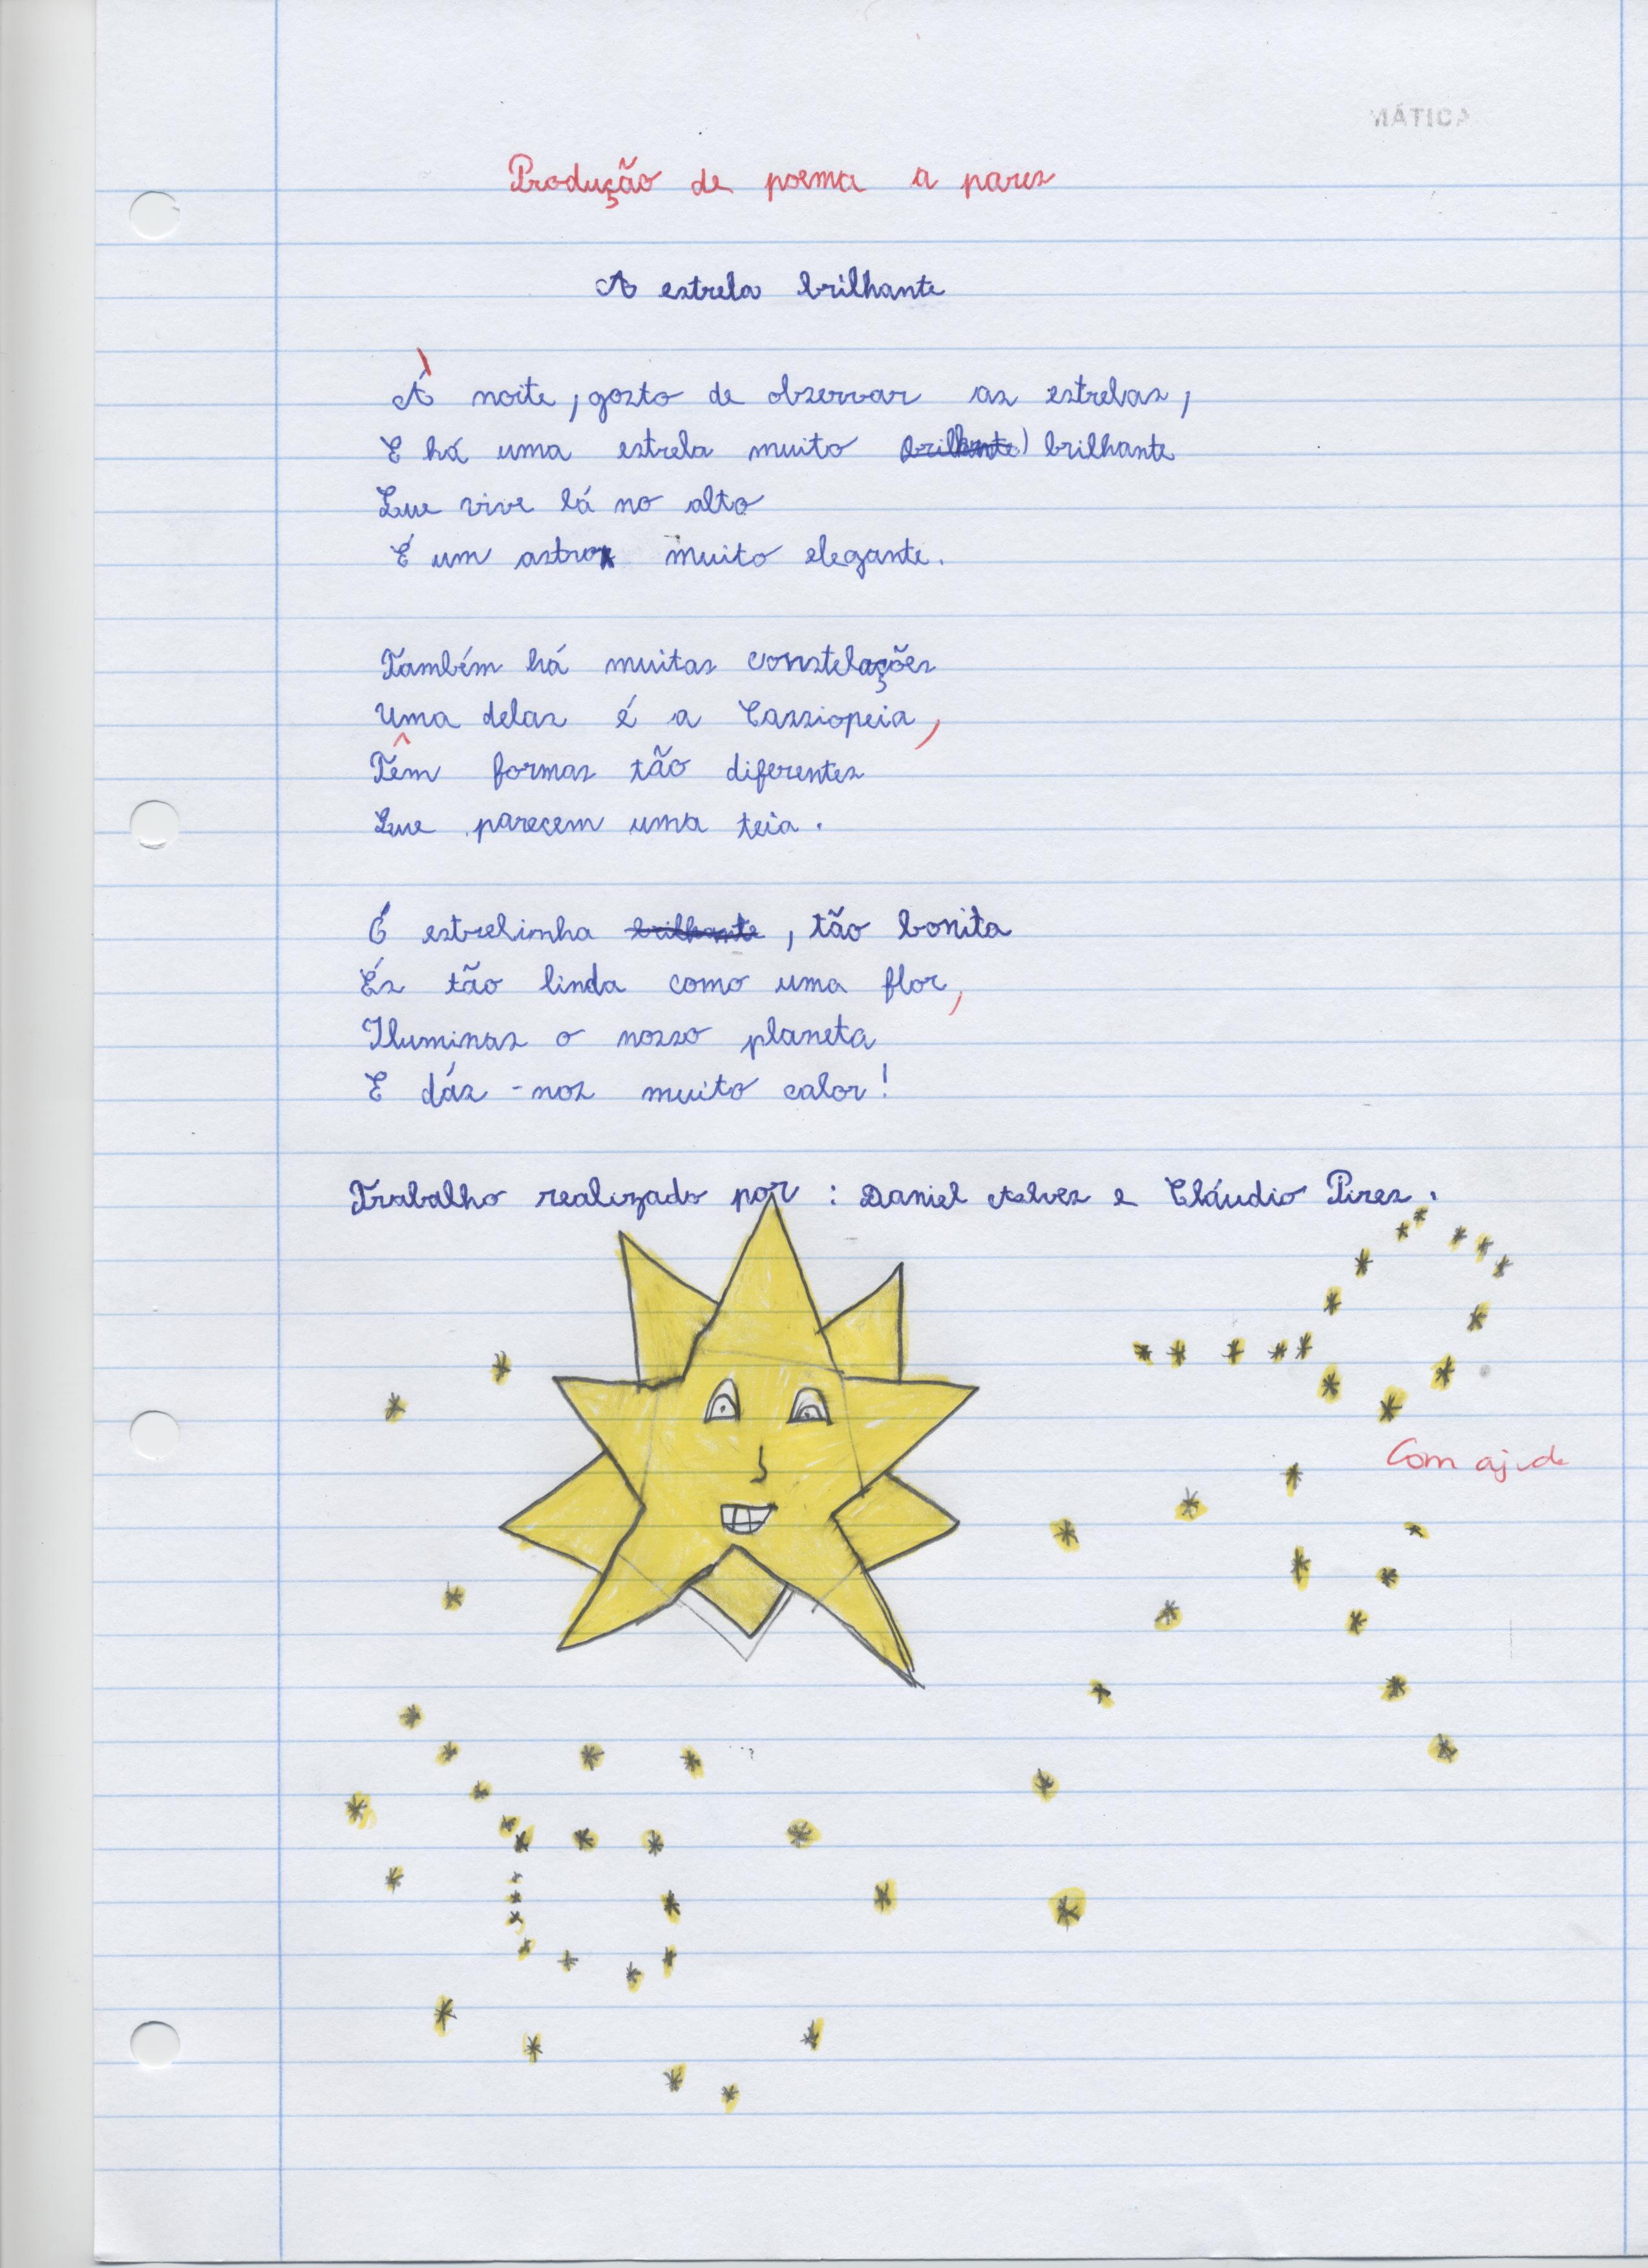 MÁTICA
Produção de poema a pares
A estrela brilhante
À noite, gosto de observar as estrelas,
E há uma estrela muito brilhante) brilhante
Que vive lá no alto
É um astro muito elegante.
Também há muitas constelações
Uma delas é a Cassiopeia,
Têm formas tão diferentes
Que parecem uma teia.
Ó estrelinha brilhante, tão bonita
És tão linda como uma flor,
Iluminas o nosso planeta
E dás-nos muito calor!
Trabalho realizado por: Daniel Alves e Cláudio Pires.
Com ajuda